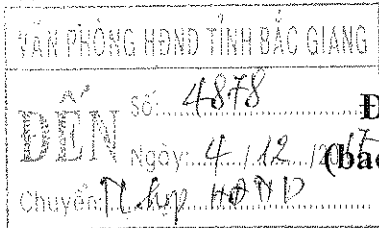 VĂN PHÒNG HĐND TỈNH BẮC GIANG
ĐẾN
Số: 4878
Ngày: 4/12/2017
Chuyển: T. họp HĐND
Đ
(bá